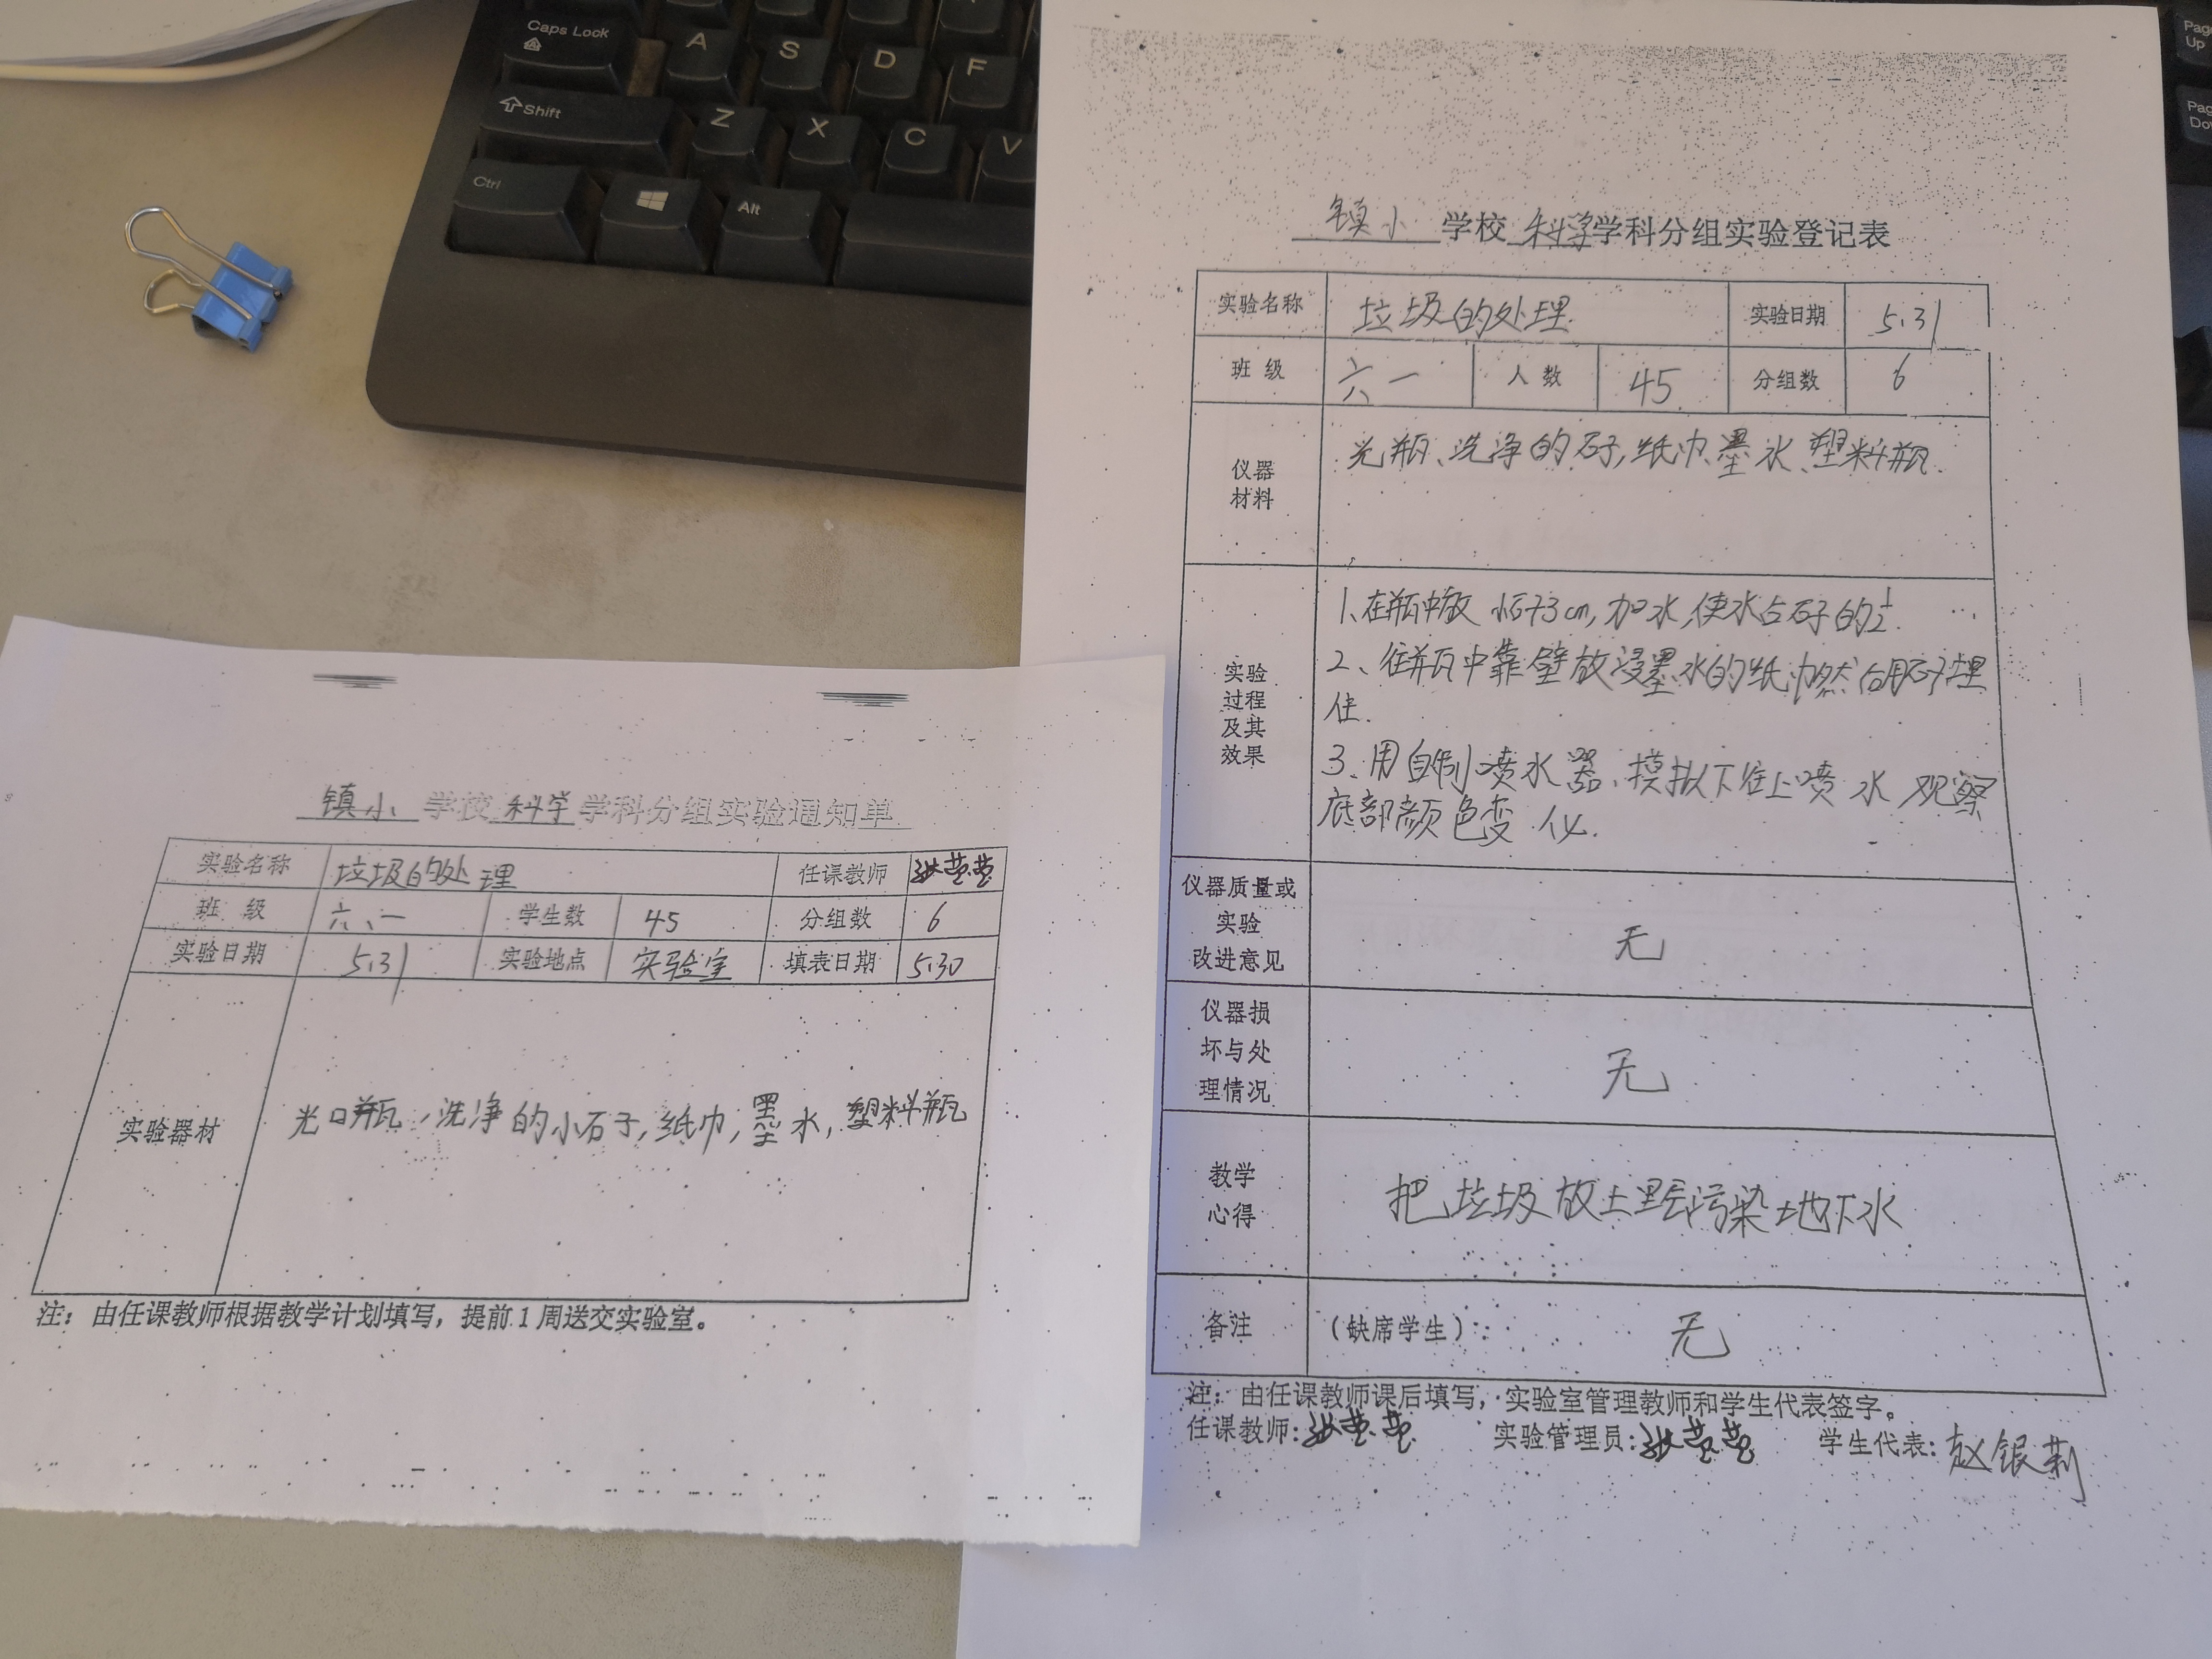 Caps Lock
A
S
D
F
Shift
Z
X
C
V
Ctrl
Alt
Page
Up
镇小 学校 科学 学科分组实验通知单
实验名称 垃圾的处理 任课教师
班 级 六、一 学生数 45 分组数 6
实验日期 5.31 实验地点 实验室 填表日期 5.30
实验器材 光口瓶、洗净的小石子,纸巾,墨水,塑料瓶
注：由任课教师根据教学计划填写，提前1周送交实验室。
镇小 学校 科学 学科分组实验登记表
实验名称 垃圾的处理. 实验日期 5.31
班 级 六一 人 数 45 分组数 6
仪器
材料
光瓶、洗净的石子,纸巾、墨水、塑料瓶.
实验
过程
及其
效果
1、在瓶中放小石子3cm,加水,使水占石子的½.
2、往瓶中靠壁放浸墨水的纸巾然后用石子埋
住.
3、用自制喷水器、模拟下往上喷水 观察
底部颜色变化.
仪器质量或
实验
改进意见
无
仪器损
坏与处
理情况
无
教学
心得
把垃圾放土里会污染地下水
备注 （缺席学生）： 无
注：由任课教师课后填写，实验室管理教师和学生代表签字。
任课教师： 实验管理员： 学生代表：赵银莉